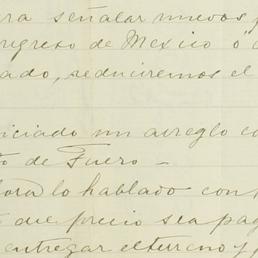 ra señalar nuevos p
ongreso de Mexico ó "c
ado, seduciremos el
niciado un arreglo co
o de Fuero —
lora lo hablado con
que precio sea pag
entregar el terreno y